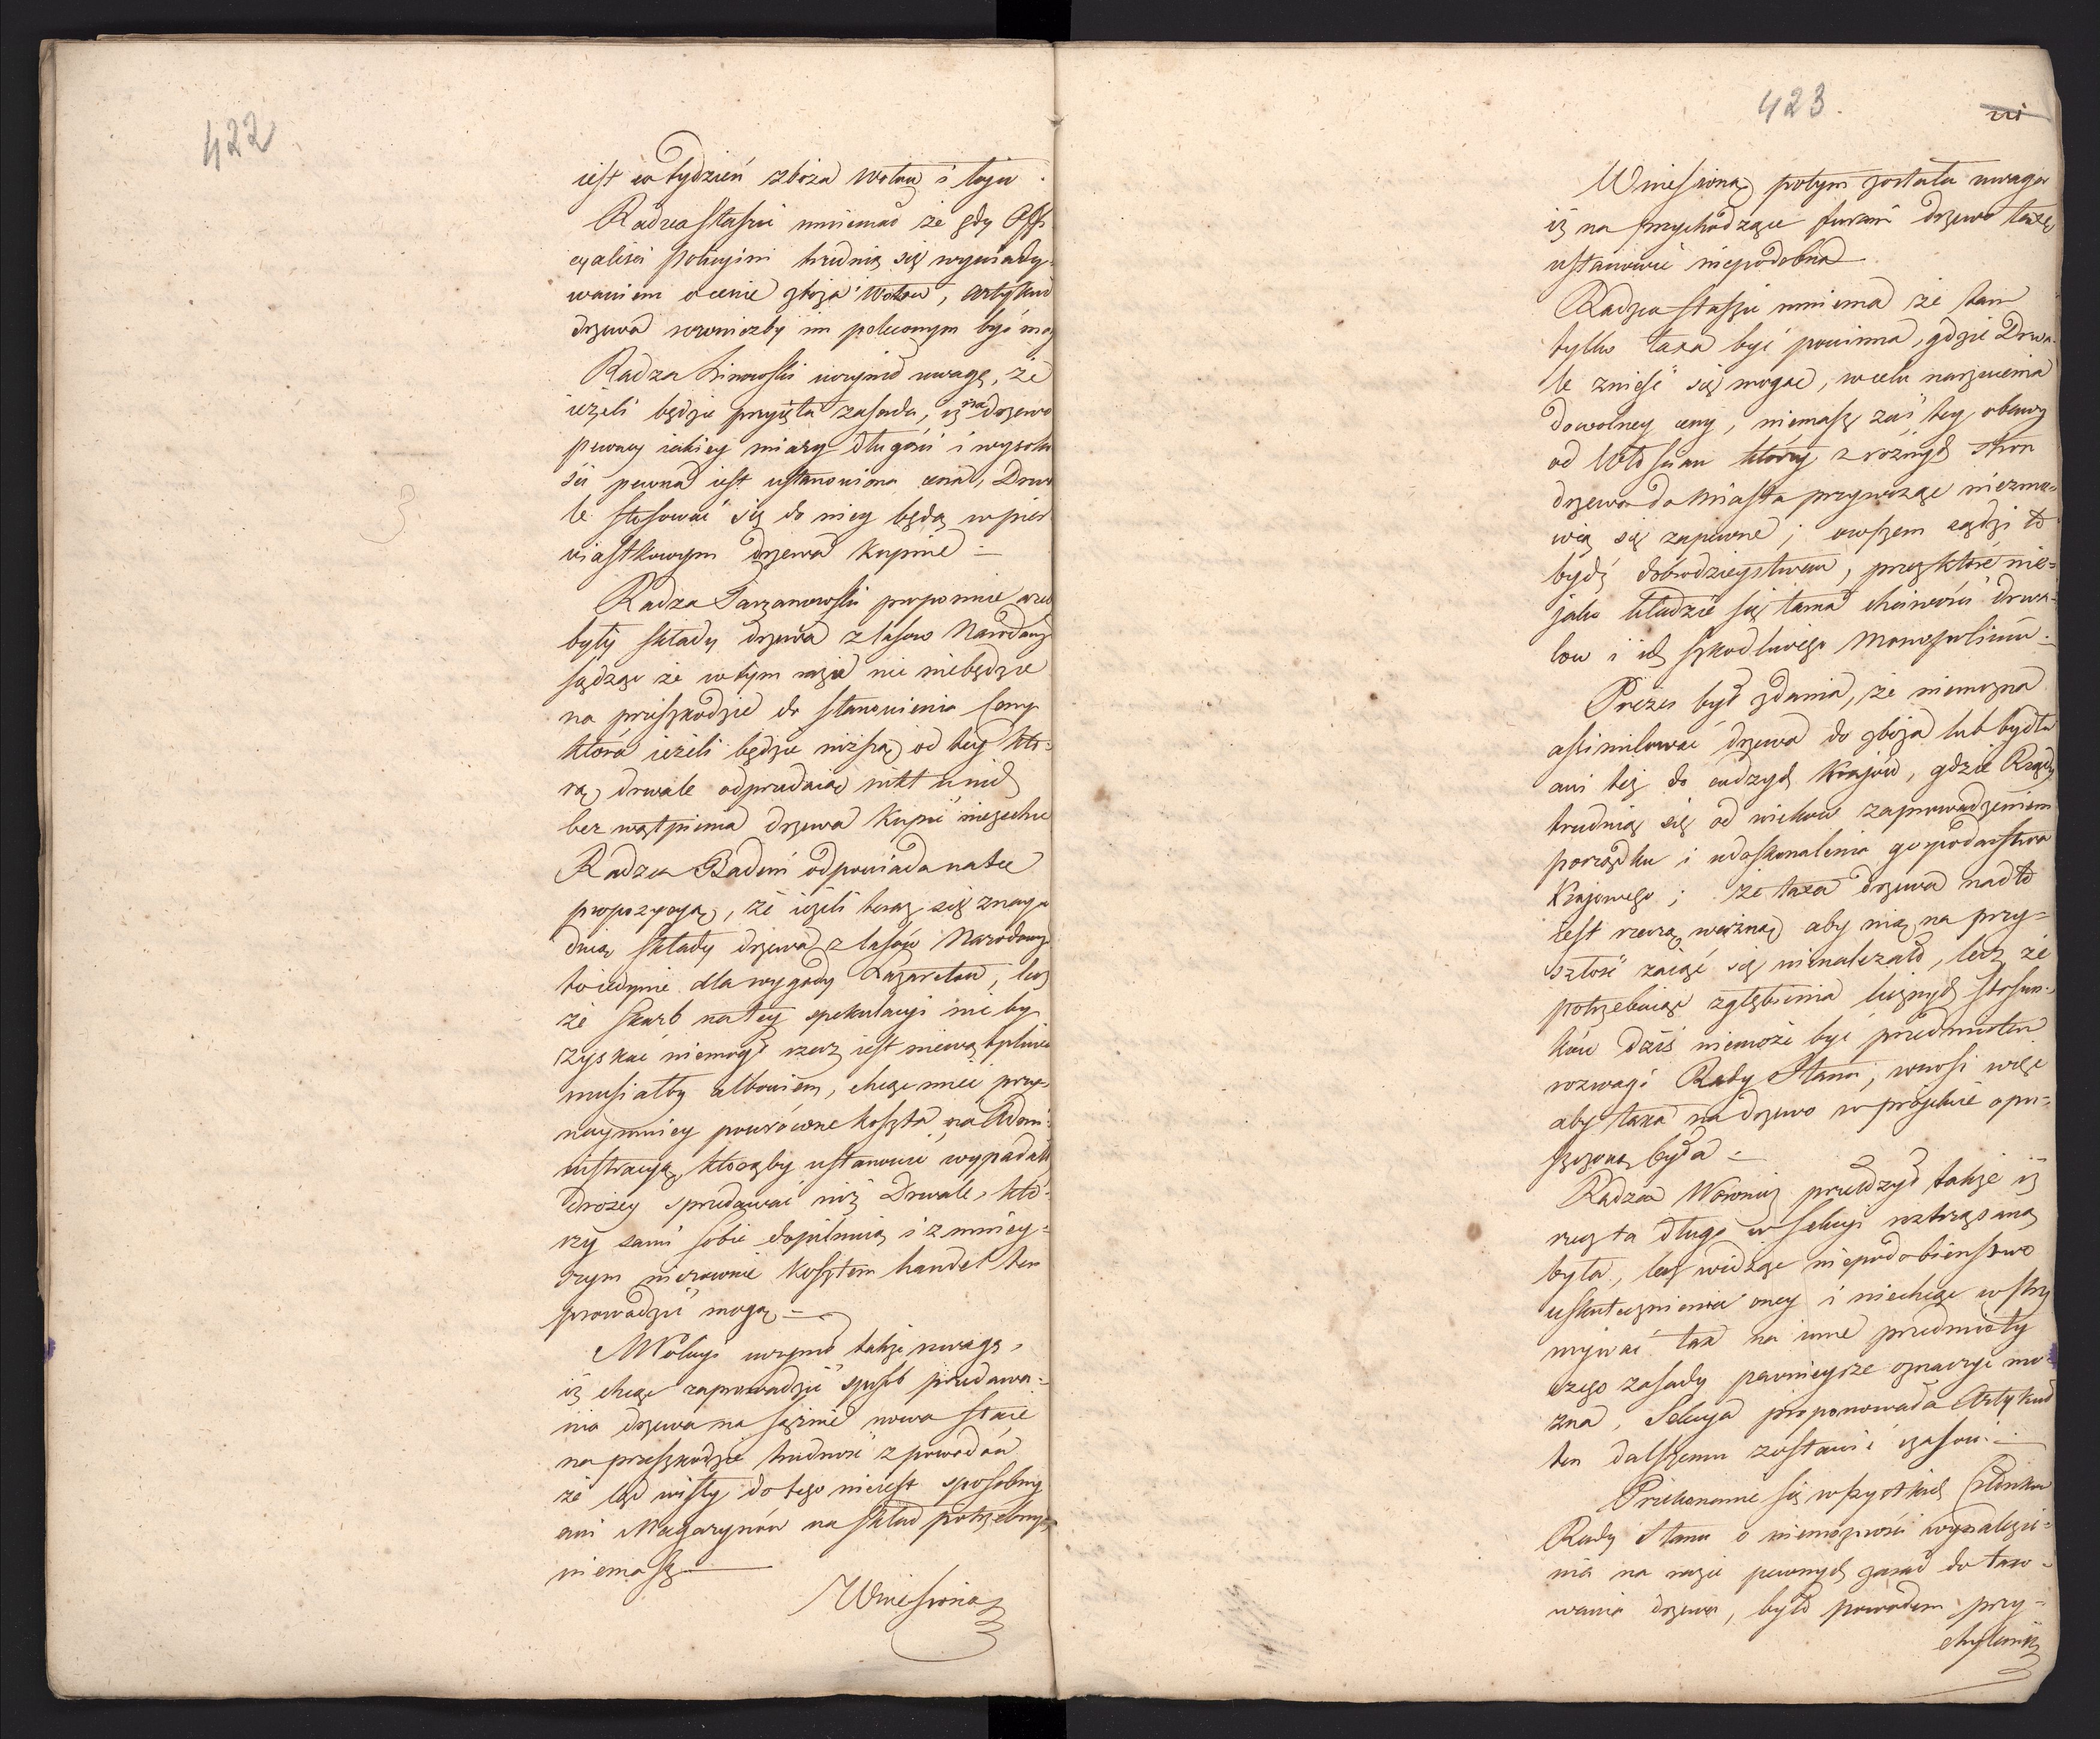 422
iest co tydzień zboża wołow i łoju.
Radca Staszic mniemał że gdy Offi-
cyaliści policyini trudnią się wywiady-
waniem o cenie zboża wołow, artykuł
drzewa rowniezby im poleconym być mog
Radca Linowski uczynił uwagę, że
ieżeli będzie przyięta zasada, iż na drzewo
pewney iakiey miary długości i wysoko
ści pewna iest ustanowiona cena, Drwa
le stosować się do niey będą w pier-
wiastkowym drzewa kupnie =
Radca proponuie azeb
były składy drzewa z lasow Narodowy
sądząc że w tym razie nic niebędzie
na przeszkodzie do stanowienia Ceny
która ieżeli będzie niższą od tey któ-
rą drwale odprzedaią nikt u nich
bez wątpienia drzewa kupić niezechce
Radca Badeni odpowiada na tę
propozycyą, że ieżeli teraz się znayd
duią składy drzewa z lasów Narodowych
to iedynie dla wygody Lazaretow, lecz
że skarb na tey spekulacyi nic by
zyskać niemógł rzecz iest niewątpliwa
musiałby albowiem, chcąc mieć przy-
naymniey powrócone koszta na Admi-
nistracyą, którąby ustanowić wypadało
drożey sprzedawać niż Drwale, któ-
rzy sami sobie dopilnuią i z mniey-
szym nierownie kosztem handel ten
prowadzić mogą =
M Policyi uczynił także uwagę,
iż chcąc zaprowadzić sposób przedawa-
nia drzewa na sążnie nowa staie
na przeszkodzie trudność z powodów
że ląd wisły do tego nieiest sposobny
ani Magazynów na skład potrzebnych
niemasz
Wniesiona
423.
Wniesioną potym została uwaga
iż na przychodzące furami drzewo taxę
ustanowić niepodobna
Radca Staszic mniema że tam
tylko taxa być powinna, gdzie Drwa-
le znieść się mogąc, w celu narzucenia
dowolney ceny, niemasz zaś tey obawy
od Włościan którzy z różnych stron
drzewo do Miasta przywożąc niezmó-
wią się zapewne; owszem sądzi to
bydź dobrodzieystwem, przez które nie-
jako kładzie się tama chciwości drwa-
low i ich szkodliwego Monopolium.
Prezes był zdania, że niemożna
assimilować drzewa do zboża lub bydła
ani też do cudzych Krajów, gdzie Rządy
trudnią się od wieków zaprowadzeniem
porządku i udoskonalenia gospodarstwa
Krajowego; że taxa drzewa nadto
iest rzeczą ważną aby nią na przy-
szłość zaiąć się nienależało, lecz że
potrzebuiąc zgłębienia licznych stosun-
ków dziś niemoże być przedmiotem
rozwagi Rady Stanu, wnosi więc
aby taxa na drzewo w projekcie opu-
szczoną była =
Radca Woronicz przełożył także iż
rzecz ta długo w Sekcyi roztrząsaną
była, lecz widząc niepodobieństwo
uskutecznienia oney i niechcąc wstrzy
mywać tax na inne przedmioty
czego zasady pewnieysze oznaczyć mo-
żna, Sekcya proponowała Artykuł
ten dalszemu zostawić czasowi.
Przekonanie się wszystkich Członków
Rady Stanu o niemożności wynalezie-
nia na razie pewnych zasad do taxo-
wania drzewa, było powodem przy-
chylenia